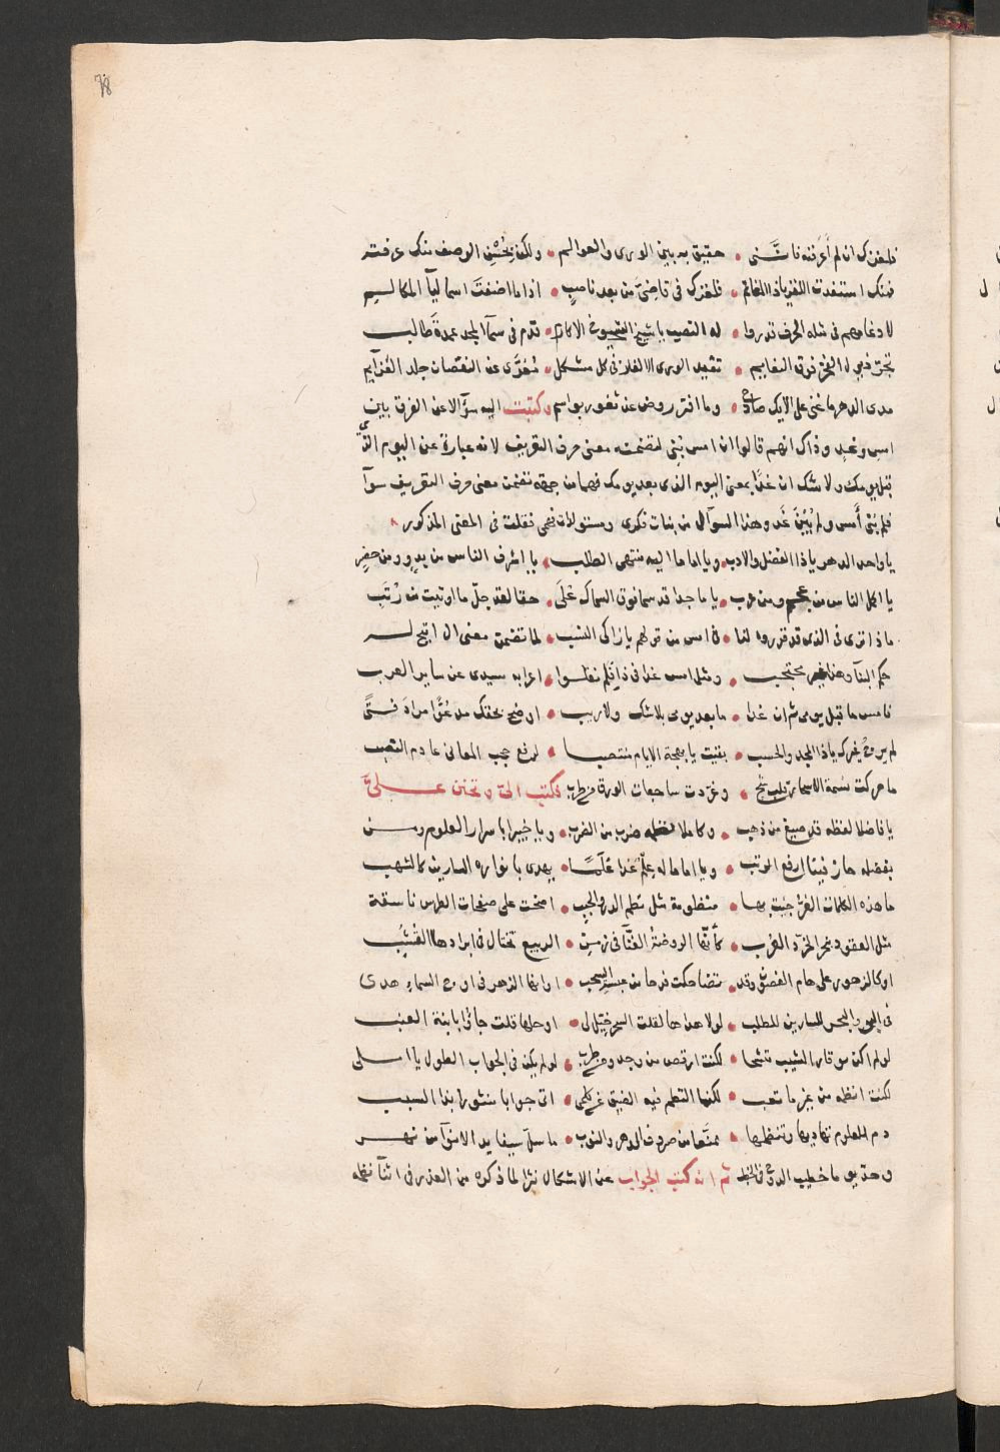 78
فلغزك ان لم أعرفنه فاننى • حقيق به بين الورى والعوالم • ولكن بحسن الوصف منك عرفته
فمنك استفدت اللغز ياذا • فلغزك فى قاضى من بعد ناصب • اذا ما اضفت اسما ليآ المكالم
لادغامهم فى مثله الحرف قد روا • له النصب يا شيخ الشيوخ الاكارم • قدم فى سمآ المجد عمدة طالب
تجر ذيول الفخر فوق النعايم • تفيد الورى الالغاز فى كل مشكل • معرى عن النقصان جلد العزايم
مدى الدهر ما غنى على الايك صادح • وما افتر روض عن ثغور بواسم وكتبت اليه سؤالا عن الفرق بين
امس وغد وذاك انهم قالوا ان امس بنى لتضمنه معنى حرف التعريف لانه عبارة عن اليوم الذى
قبل يومك ولا شك ان غدا بمعنى اليوم الذى بعد يومك فهما من جهة تضمن معنى حرف التعريف سوآ
فلم بنى أمس ولم يبن غد وهذا السوآل من بنات فكرى ومستولدات فهمى فقلت فى المعنى المذكور
يا واحد الدهر ياذا الفضل والادب • ويا اماما اليه منتهى الطلب • يا اشرف الناس من بدو ومن حضر
يا اكمل الناس من عجم ومن عرب • يا ماجدا قد سما فوق السماك على • حقا لقد جل ما اوتيت من رتب
ماذا ترى فى الذى قد قرروه لنا • فى امس من قولهم يا زاكى النسب • لما تضمن معنى ال اتيح له
حكم البنآ وهذا غير محتجب • ومثل امس غدا فى ذا فلم نقلوا • اعرابه سيدى عن ساير العرب
فامس ما قبل يومى ثم ان غدا • ما بعد يومى بلا شك ولا ريب • اوضح بحقك مدعوا مراد فتى
لم يرج غيرك ياذا المجد والحسب • بقيت يا بهجة الايام منتصبا • لرفع حجب المعانى عادم النصب
ما حركت نسمة الاسحار قلب شج • وغردت ساجعات الورق من طرب فكتب الى وتحنن على
يا فاضلا لفظه قد صيغ من ذهب • وكاملا لفظه ضرب من الضرب • ويا خبيرا باسرار العلوم ومن
بفضله حاز فينا ارفع الرتب • ويا اماما له علم غدا علما • يهدى بانواره السارين كالشهب
ما هذه الكلمات الغر جئت بها • منظومة مثل نظم الدر والحبب • اضحت على صفحات الطرس ناسقة
مثل العقود بنحر الخرد العرب • كأنها الروضة الغنآ فى زمن • الربيع تختال فى ابرادها القشب
او كالزهور على هام الغصون وقد • تضاحكت فرحا من السحب • او انها الزهر فى اوج السماء هدى
فى البر والبحر للسارين للطلب • لولا هداها لقلت السحر خيل لى • او حلها قلت جآؤا بابنة العنب
لو لم اكن موقار الشيب متشحا • لكنت ارقص من وجد ومن طرب • لو لم يكن فى الجواب الطول يا املى
لكنت انظمه من غير ما تعب • لكنما النظم فيه الضيق عن كلمى • اتى جوابا منثورا بذا السبب
دم للعلوم تهاديها وتنظمها • ممتعا من صروف الدهر والنوب • ما سل سيفا يد الانوآ من نهر
وحديق ما خطيب الدوح فى الخطب ثم انه كتب الجواب عن الاشكال نثرا لما ذكره من العذر فى اثنآ نظمه